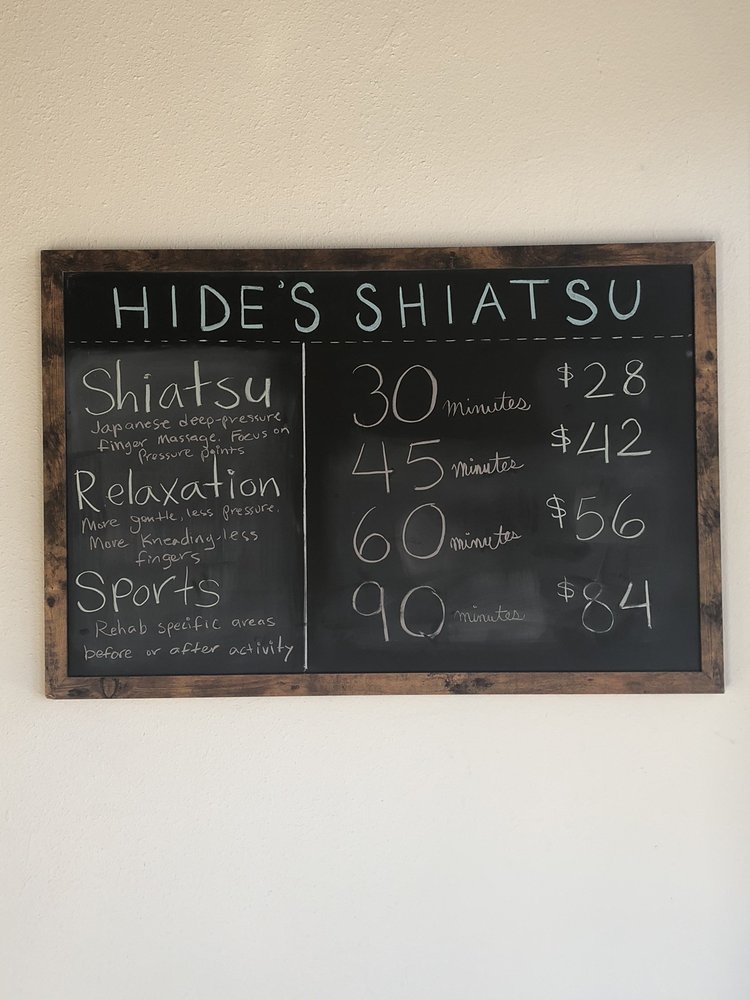 HIDE'S SHIATSU
Shiatsu
Japanese deep-pressure
finger massage. Focus on
Pressure points
Relaxation
More gentle, less pressure.
More Kneading-less
fingers
Sports
Rehab specific areas
before or after activity
30 minutes $28
45 minutes $42
60 minutes $56
90 minutes $84